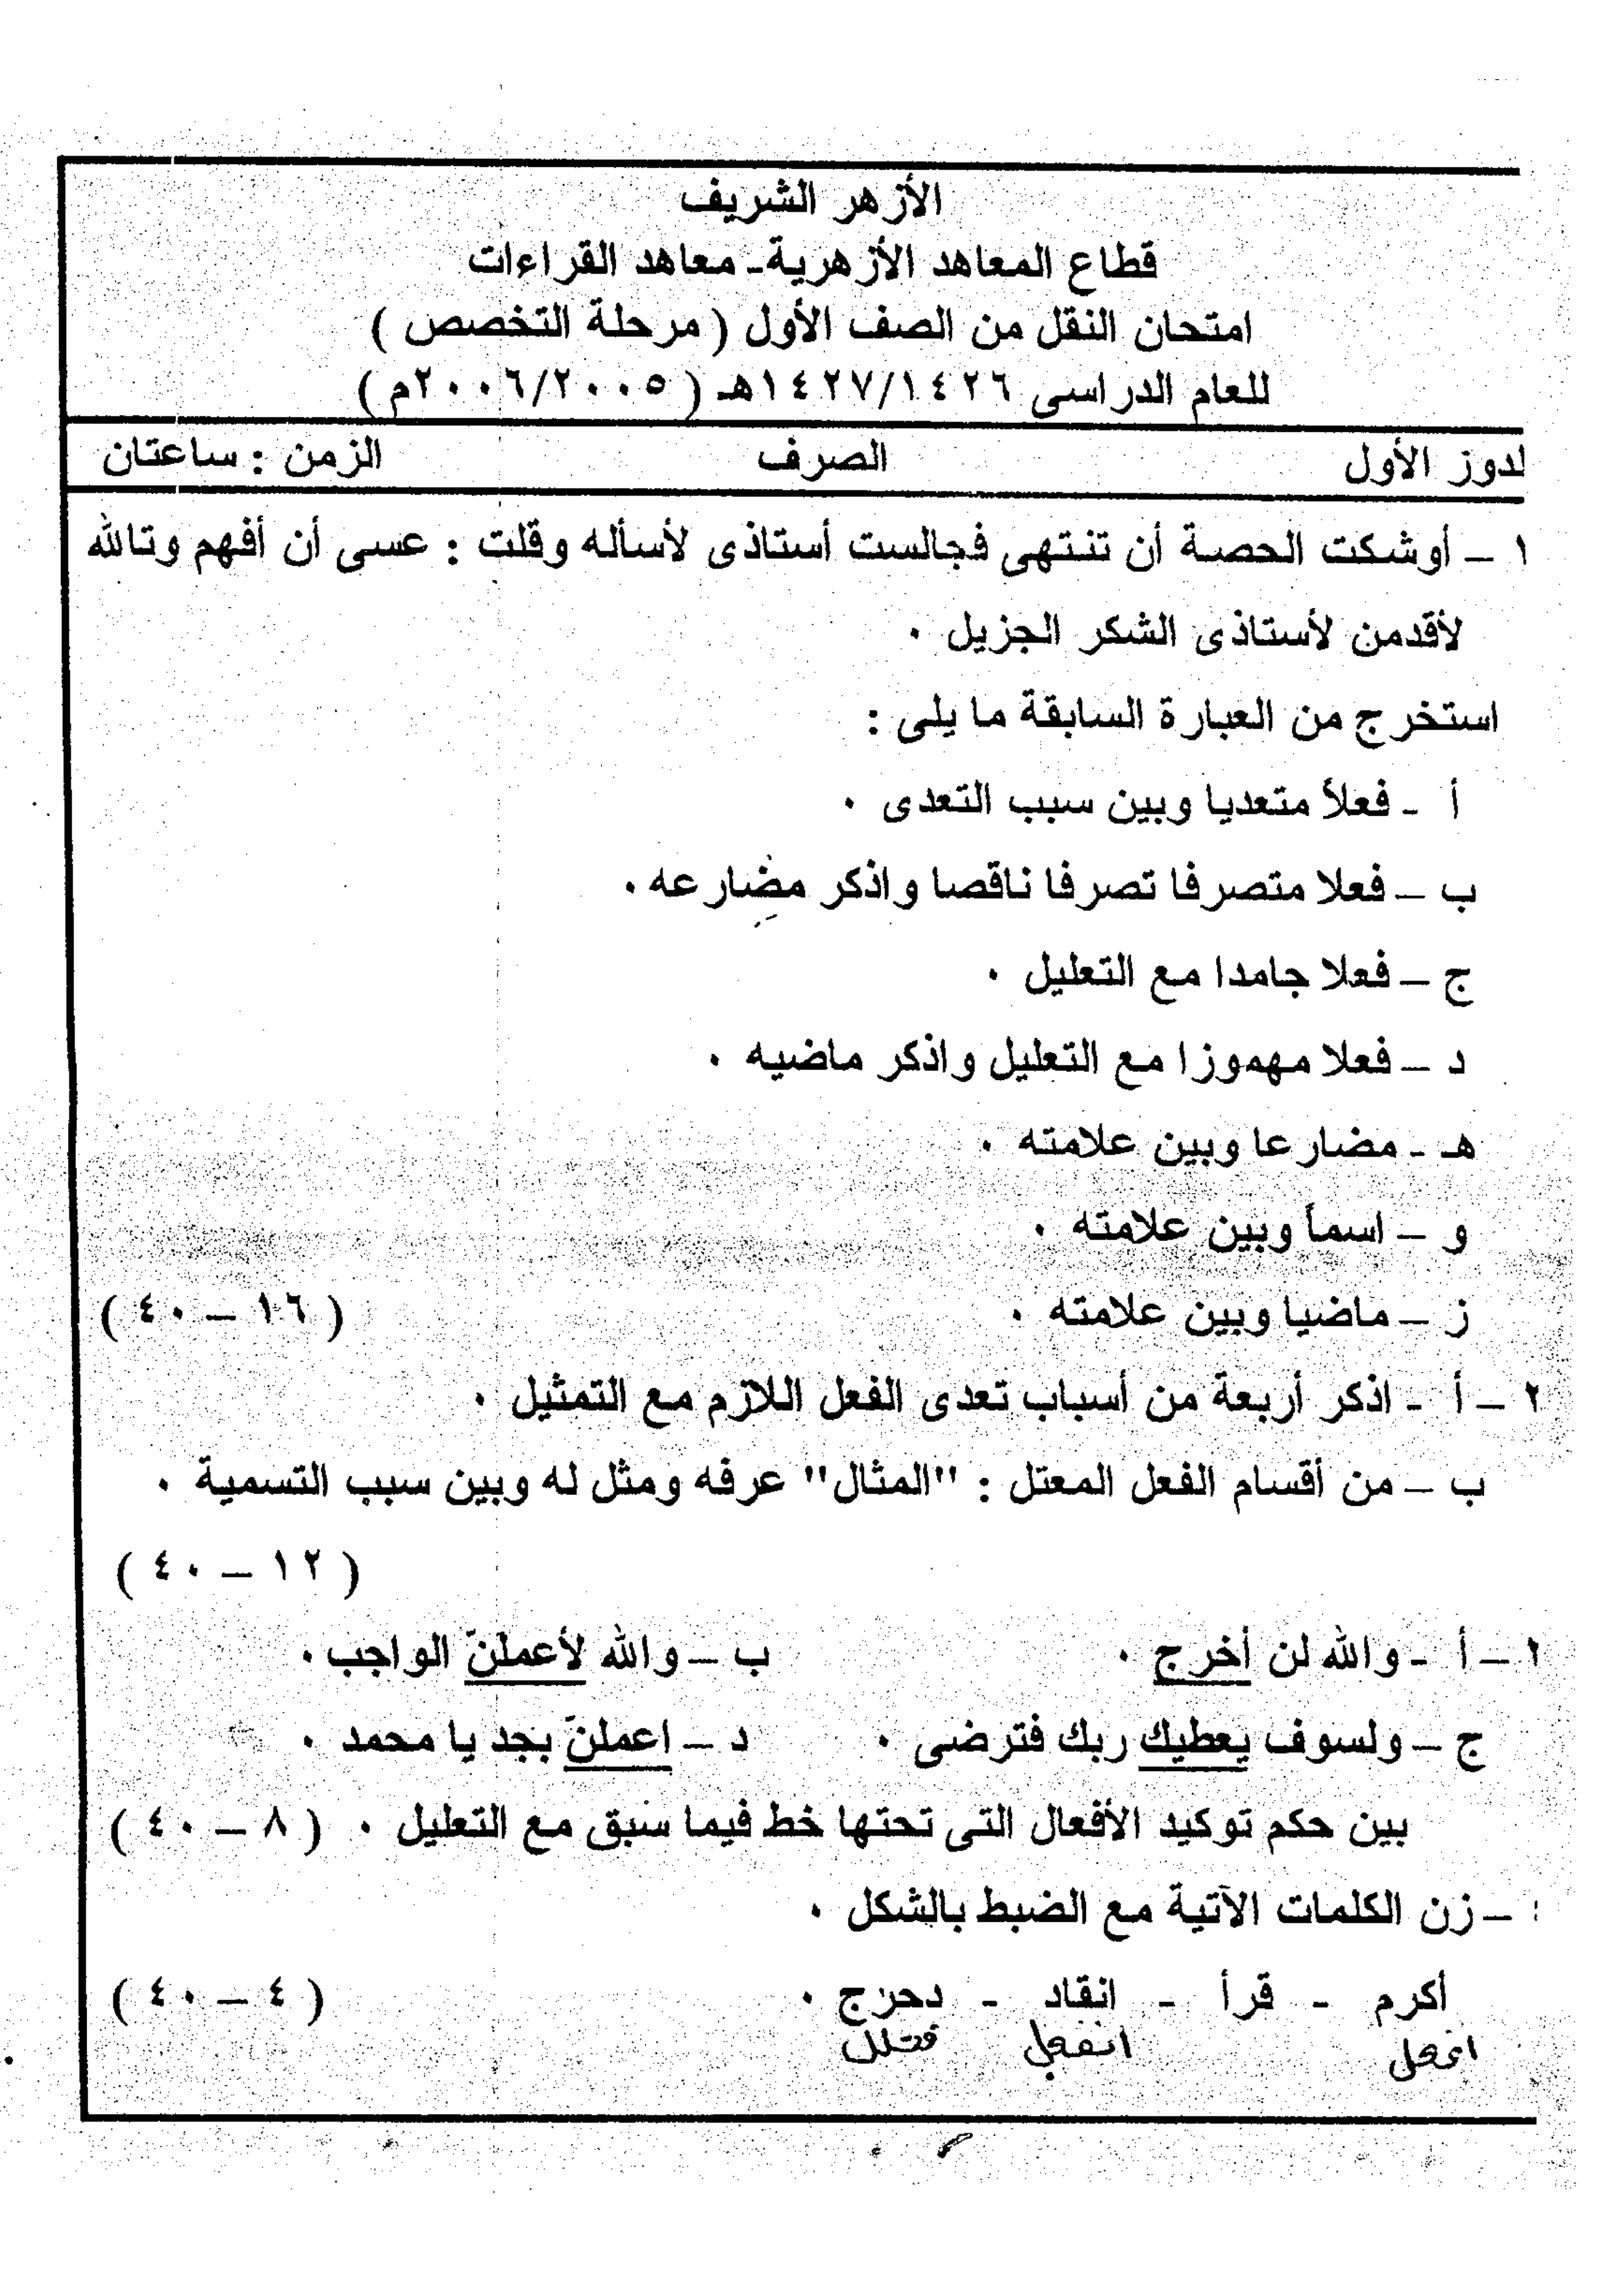 الأزهر الشريف
قطاع المعاهد الأزهرية - معاهد القراءات
امتحان النقل من الصف الأول ( مرحلة التخصص )
للعام الدراسى ١٤٢٧/١٤٢٦هـ ( ٢٠٠٦/٢٠٠٥م )
لدور الأول الصرف الزمن : ساعتان
١ – أوشكت الحصة أن تنتهى فجالست أستاذى لأسأله وقلت : عسى أن أفهم وتالله
لأقدمن لأستاذى الشكر الجزيل .
استخرج من العبارة السابقة ما يلى :
أ - فعلاً متعديا وبين سبب التعدى .
ب – فعلا متصرفا تصرفا ناقصا واذكر مضارعه .
ج – فعلا جامدا مع التعليل .
د – فعلا مهموزا مع التعليل واذكر ماضيه .
هـ - مضارعا وبين علامته .
و – اسماً وبين علامته .
ز – ماضيا وبين علامته . ( ١٦ – ٤٠ )
٢ – أ - اذكر أربعة من أسباب تعدى الفعل اللازم مع التمثيل .
ب – من أقسام الفعل المعتل : "المثال" عرفه ومثل له وبين سبب التسمية .
( ١٢ – ٤٠ )
– أ - والله لن أخرج . ب – والله لأعملنّ الواجب .
ج – ولسوف يعطيك ربك فترضى . د – اعملنّ بجد يا محمد .
بين حكم توكيد الأفعال التى تحتها خط فيما سبق مع التعليل . ( ٨ – ٤٠ )
– زن الكلمات الآتية مع الضبط بالشكل .
أكرم - قرأ - انقاد - دحرج . ( ٤ – ٤٠ )
انفعل فعلل